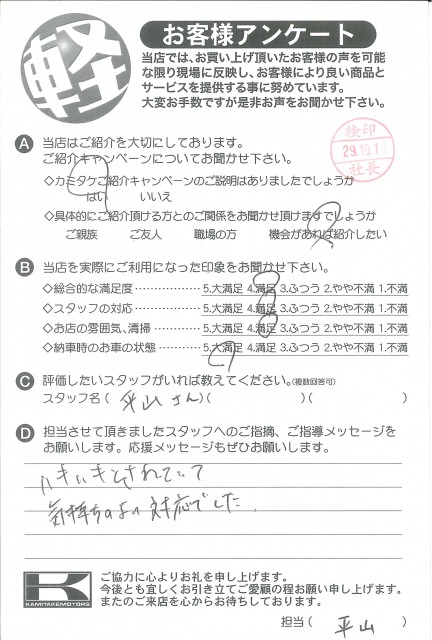 軽
お客様アンケート
当店では、お買い上げ頂いたお客様の声を可能
な限り現場に反映し、お客様により良い商品と
サービスを提供する事に努めています。
大変お手数ですが是非お声をお聞かせ下さい。
A 当店はご紹介を大切にしております。
ご紹介キャンペーンについてお聞かせ下さい。
検印
29.10.1
社長
◇カミタケご紹介キャンペーンのご説明はありましたでしょうか
はい いいえ
◇具体的にご紹介頂ける方とのご関係をお聞かせ頂けますでしょうか
ご親族 ご友人 職場の方 機会があれば紹介したい
B 当店を実際にご利用になった印象をお聞かせ下さい。
◇総合的な満足度 5.大満足 4.満足 3.ふつう 2.やや不満 1.不満
◇スタッフの対応 5.大満足 4.満足 3.ふつう 2.やや不満 1.不満
◇お店の雰囲気、清掃 5.大満足 4.満足 3.ふつう 2.やや不満 1.不満
◇納車時のお車の状態 5.大満足 4.満足 3.ふつう 2.やや不満 1.不満
C 評価したいスタッフがいれば教えてください。(複数回答可)
スタッフ名(平山さん)( )( )
D 担当させて頂きましたスタッフへのご指摘、ご指導メッセージを
お願いします。応援メッセージもぜひお願いします。
ハキハキとされていて
気持ちのよい対応でした。
K
KAMITAKEMOTORS
ご協力に心よりお礼を申し上げます。
今後とも宜しくお引き立てご愛顧の程お願い申し上げます。
またのご来店を心からお待ちしております。
担当(平山)